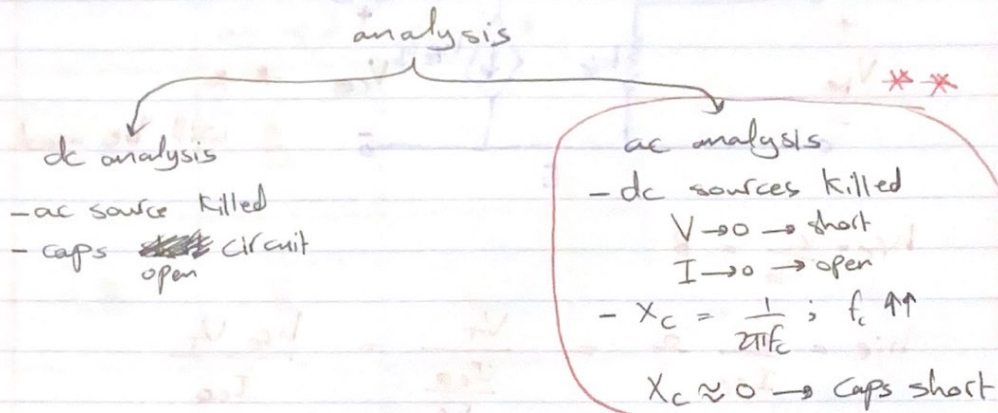 analysis
dc analysis
- ac source killed
- caps open circuit
** 
ac analysis
- dc sources killed
V → 0 → short
I → 0 → open
- Xc = 1/2πfc ; fc ↑↑
Xc ≈ 0 → caps short